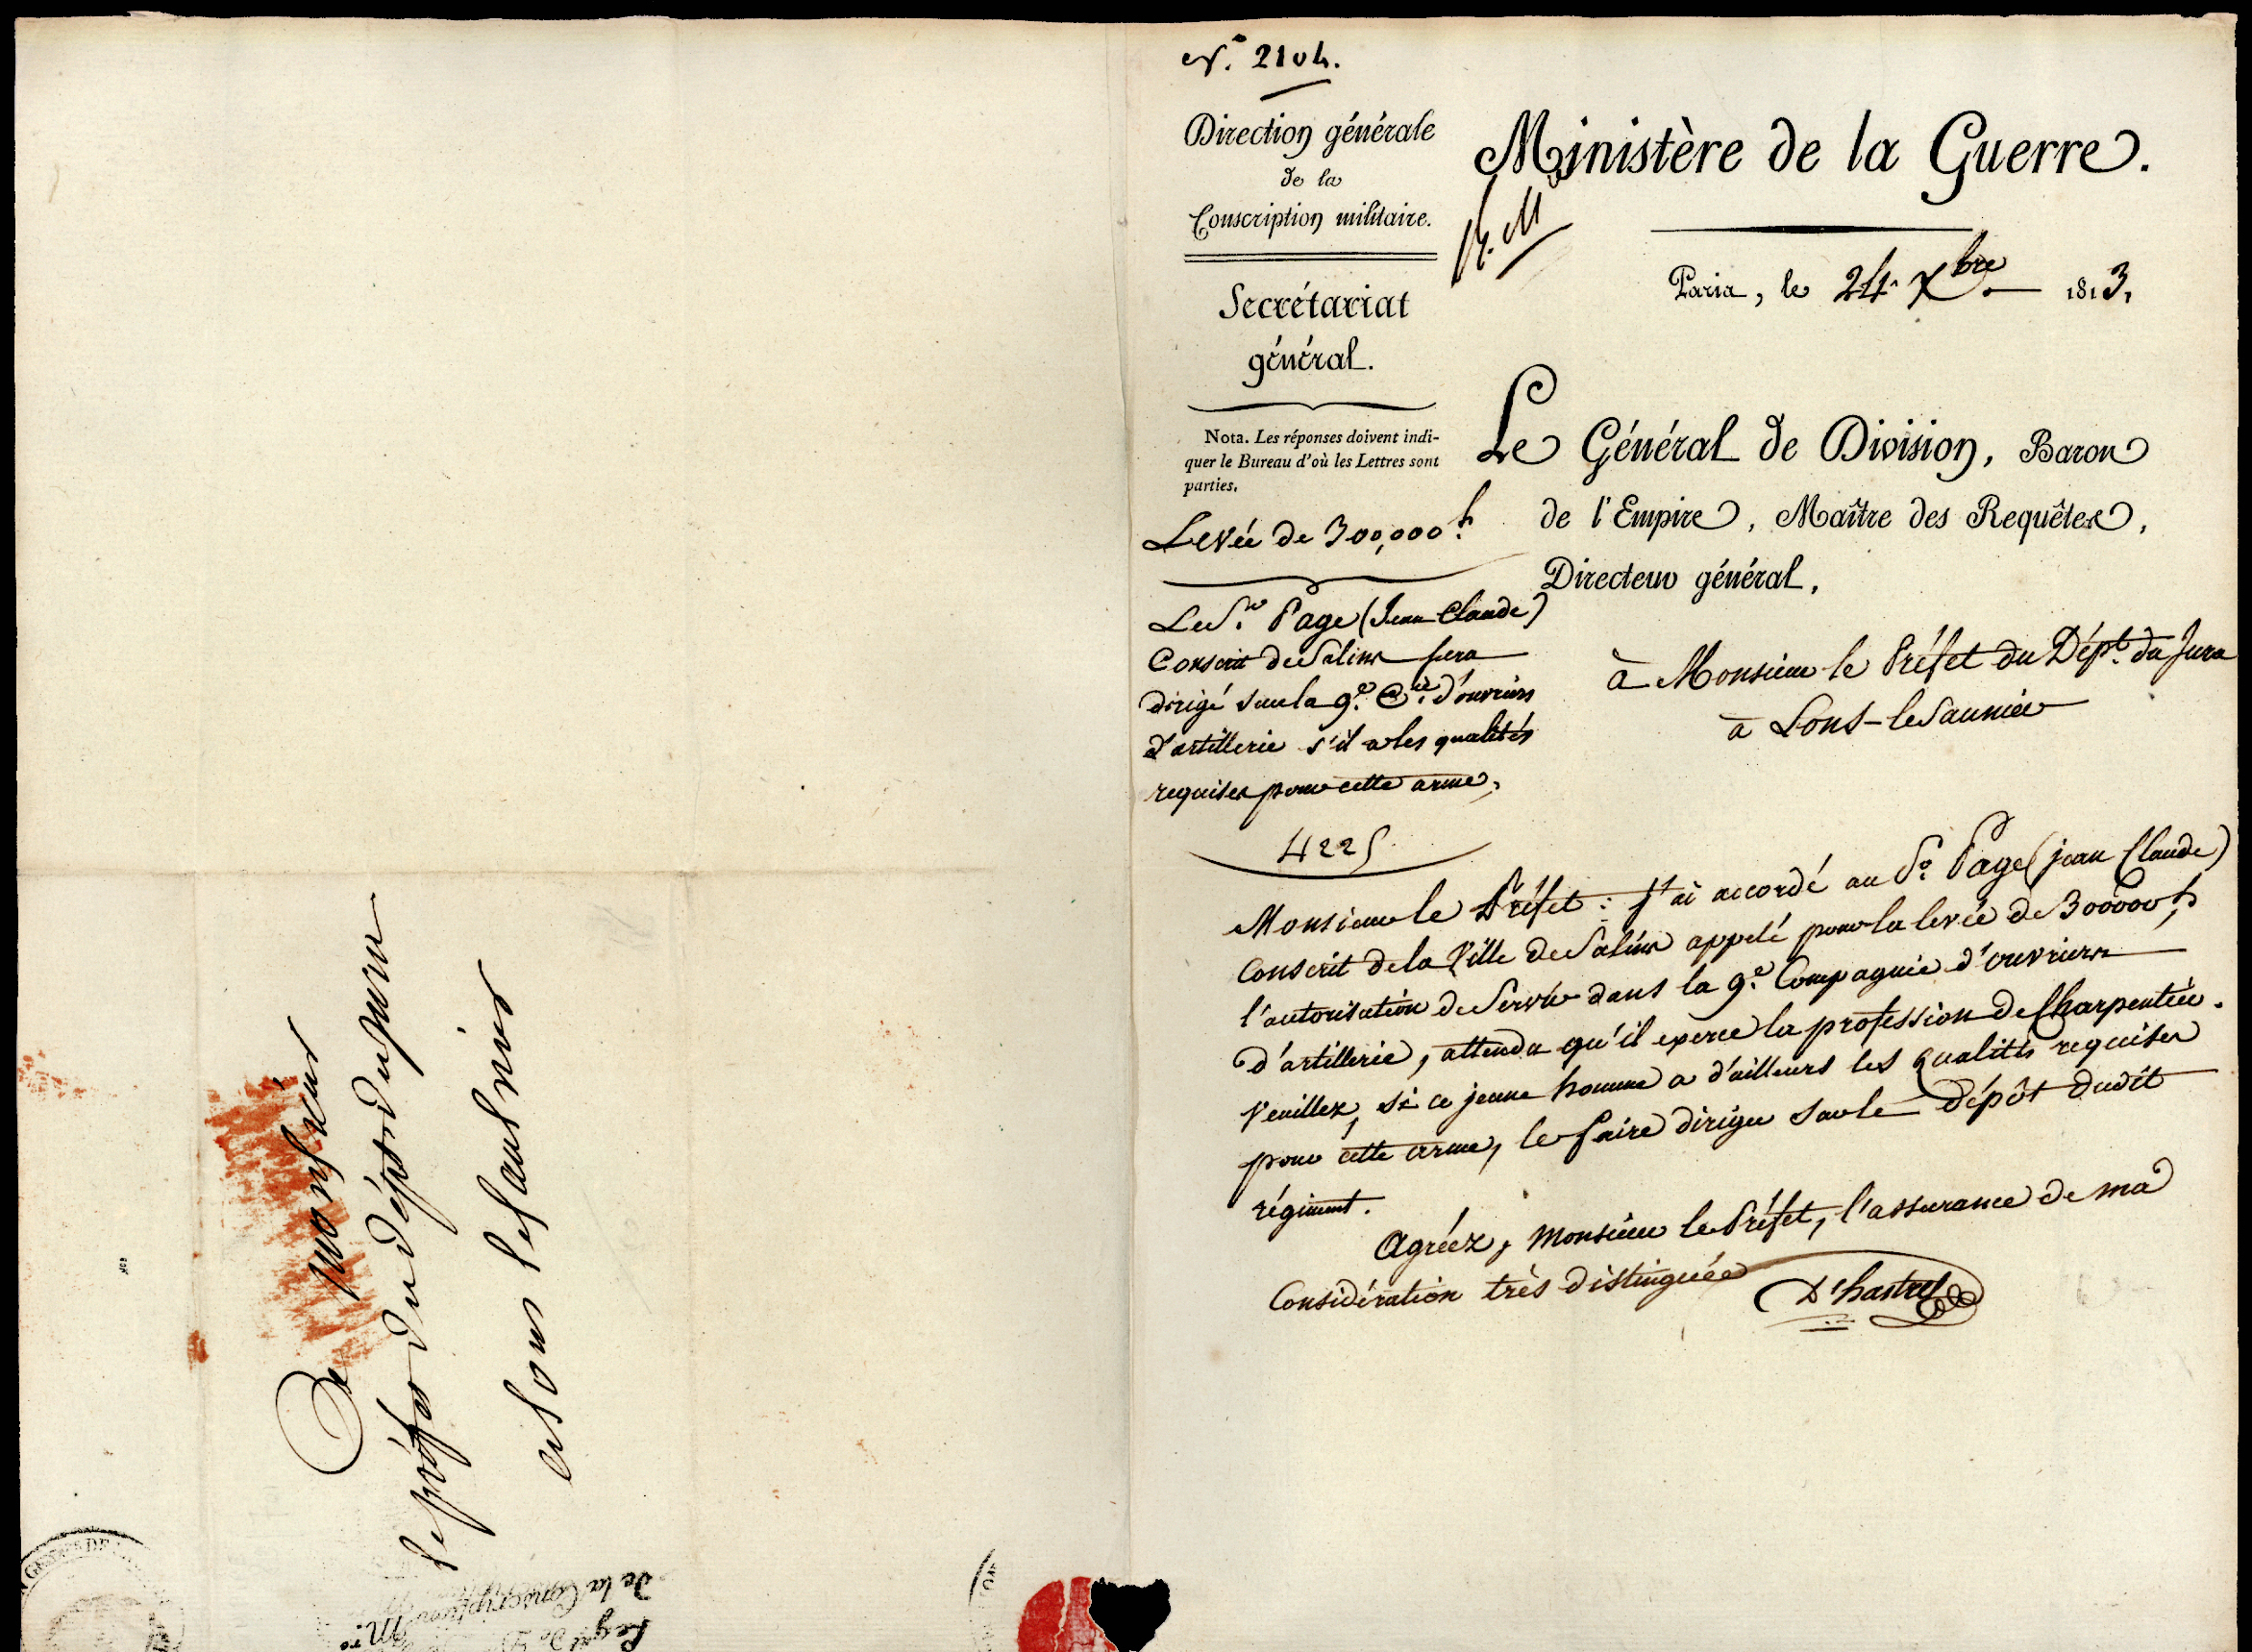 N.° 2104.
Direction générale
de la
Conscription militaire.
Secrétariat
général.
Nota. Les réponses doivent indi-
quer le Bureau d'où les Lettres sont
parties.
Levée de 300,000 h.
Le Sr. Page (Jean Claude)
Conscrit de Salins sera
dirigé sur la 9.e Cie. d'ouvriers
d'artillerie s'il a les qualités
requises pour cette arme,
4225
Ministère de la Guerre.
Paris, le 24 Xbre. 1813,
Le Général de Division, Baron
de l'Empire, Maître des Requêtes,
Directeur général,
à Monsieur le Préfet du Dépt. du Jura
à Lons-le Saunier
Monsieur le Préfet : J'ai accordé au Sr. Page (jean Claude)
Conscrit de la Ville de Salins appelé pour la levée de 300000 h,
l'autorisation de Servir dans la 9.e Compagnie d'ouvriers
d'artillerie, attendu qu'il exerce la profession de Charpentier.
Veuillez, si ce jeune homme a d'ailleurs les qualités requises
pour cette arme, le faire diriger sur le dépôt dudit
régiment.
Agréez, Monsieur le Préfet, l'assurance de ma
Considération très distinguée
D'hastrel
A monsieur
le préfet du dépt du jura
a Lons le saulnier
de la Conscription M.re